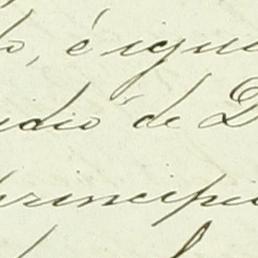 do, é igua
udio de D
principio